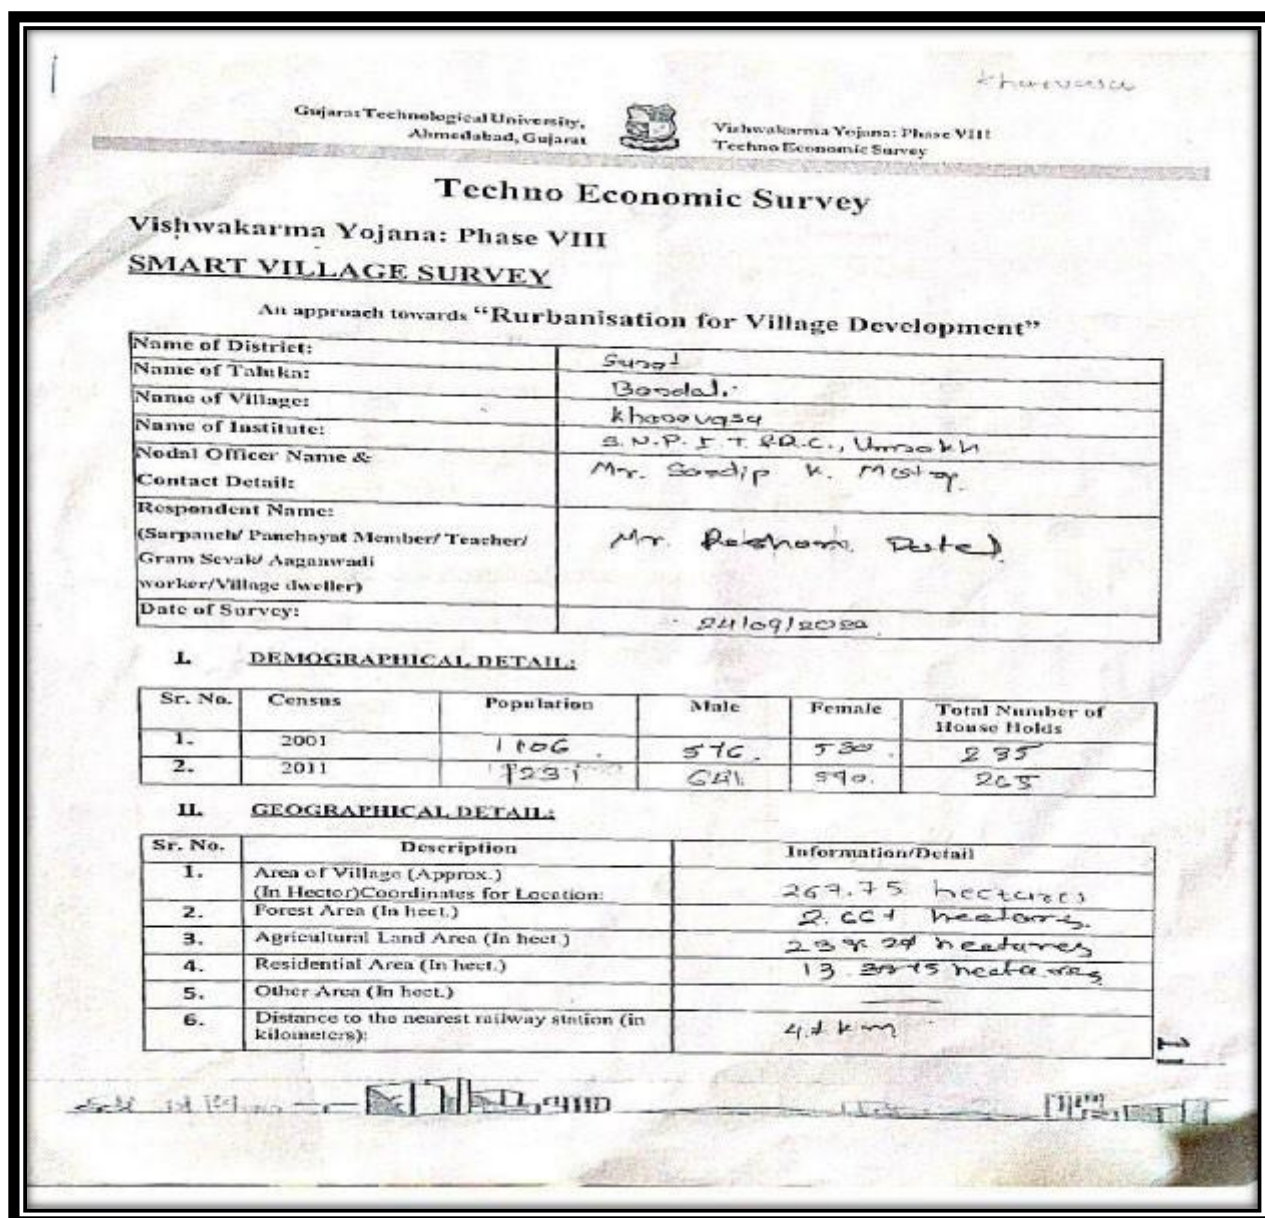 Kharvasa
Gujarat Technological University,
Ahmedabad, Gujarat
Vishwakarma Yojana: Phase VIII
Techno Economic Survey
Techno Economic Survey
Vishwakarma Yojana: Phase VIII
SMART VILLAGE SURVEY
An approach towards “Rurbanisation for Village Development”
Name of District: Surat
Name of Taluka: Bardoli.
Name of Village: Kharvasa
Name of Institute: S.N.P.I.T. & R.C., Umrakh
Nodal Officer Name &
Contact Detail: Mr. K. Mistry.
Respondent Name:
(Sarpanch/ Panchayat Member/ Teacher/
Gram Sevak/ Aaganwadi
worker/Village dweller)
Mr. Patel
Date of Survey: 24/09/2020
I. DEMOGRAPHICAL DETAIL:
Sr. No. Census Population Male Female Total Number of
House Holds
1. 2001 1106 576 530 235
2. 2011 1231 641 590. 265
II. GEOGRAPHICAL DETAIL:
Sr. No. Description Information/Detail
1. Area of Village (Approx.)
(In Hector)Coordinates for Location: 267.75 hectares
2. Forest Area (In hect.) hectares
3. Agricultural Land Area (In hect.) hectares
4. Residential Area (In hect.) 13. hectares
5. Other Area (In hect.)
6. Distance to the nearest railway station (in
kilometers): km
11